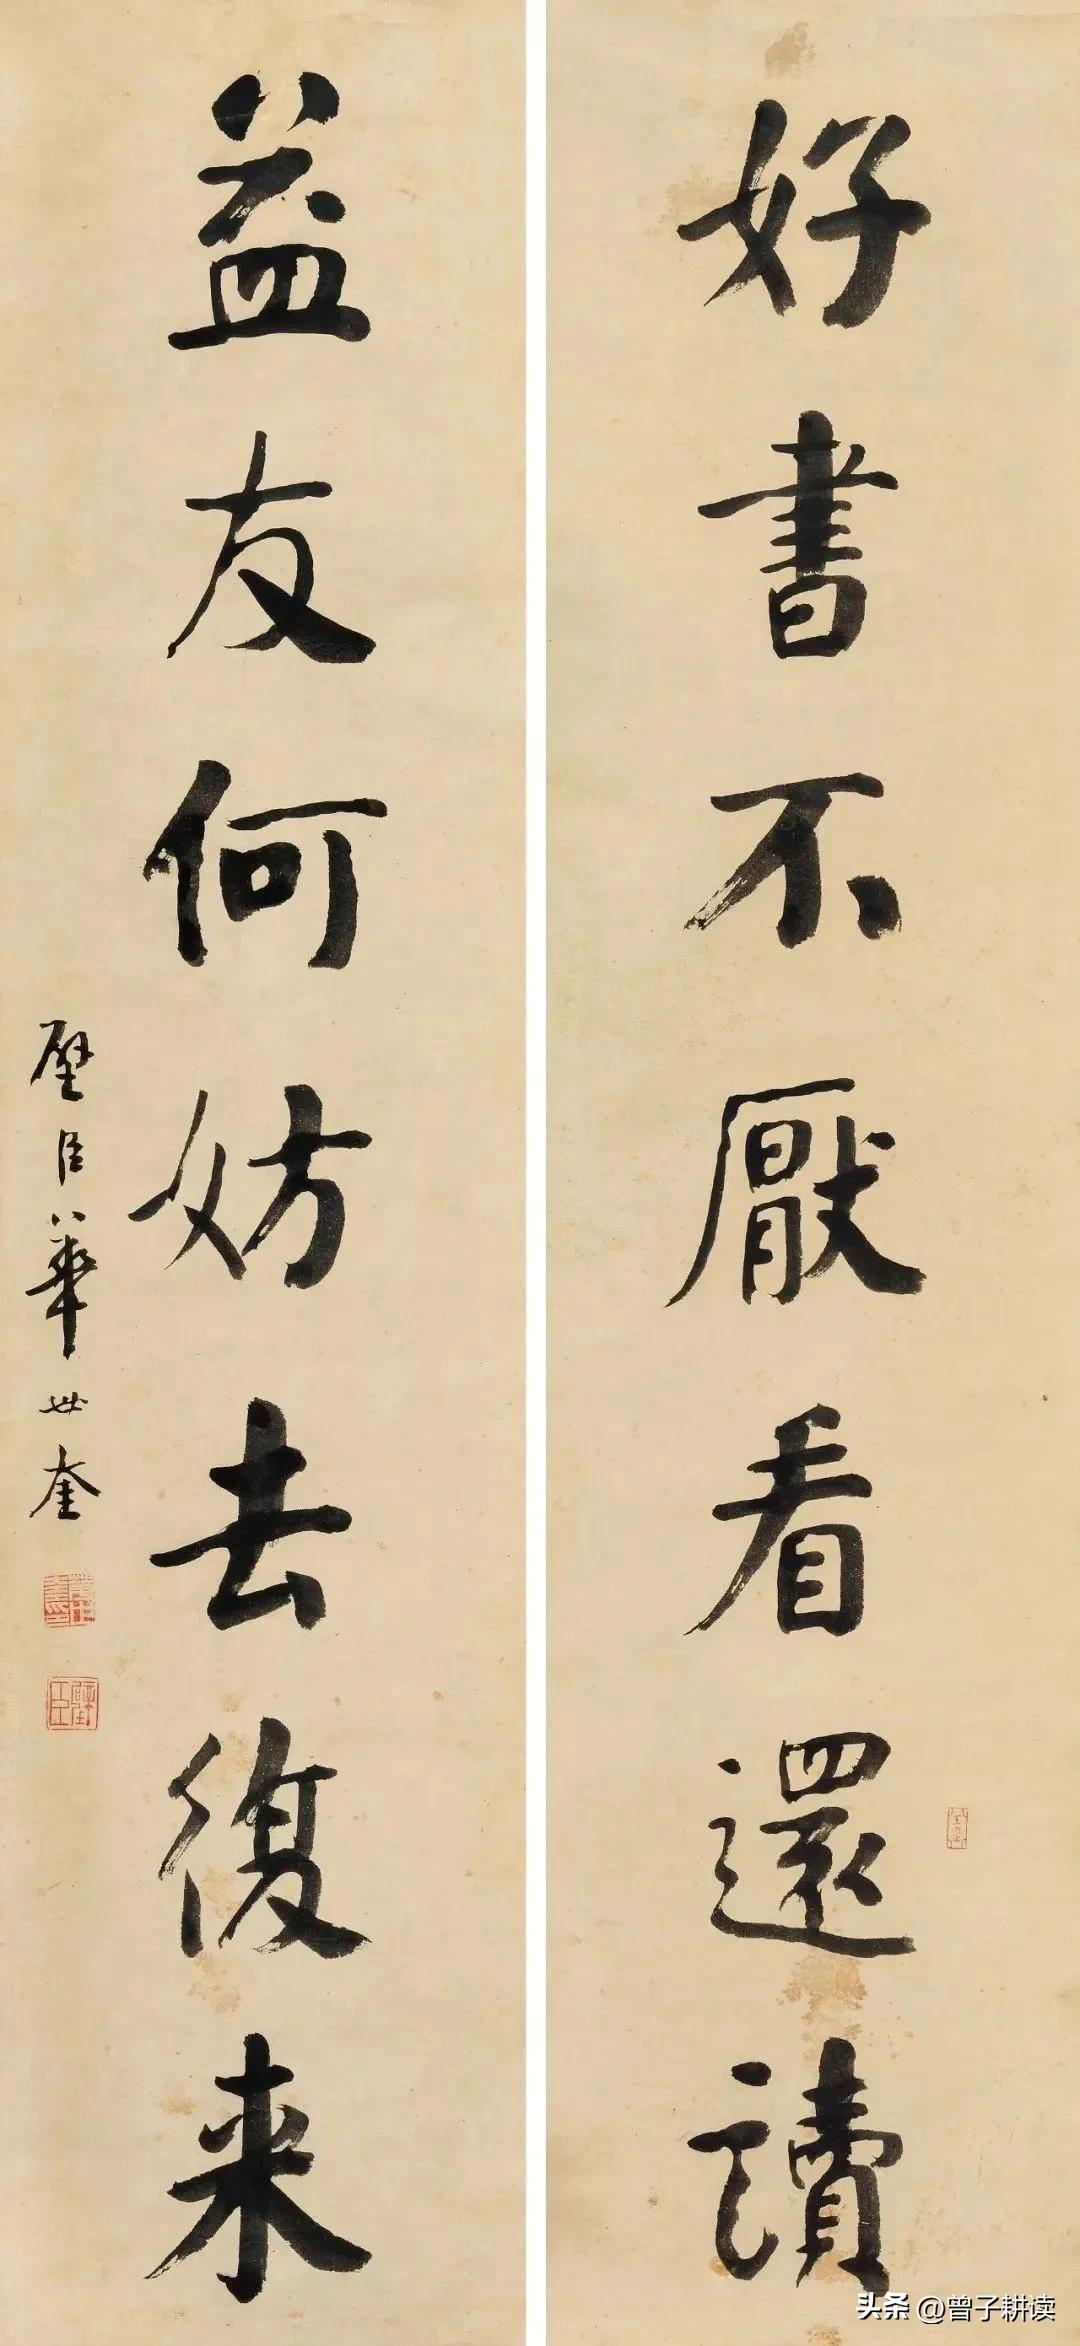 好書不厭看還讀
益友何妨去復来
壁臣華世奎
壁臣
头条 @曾子耕读